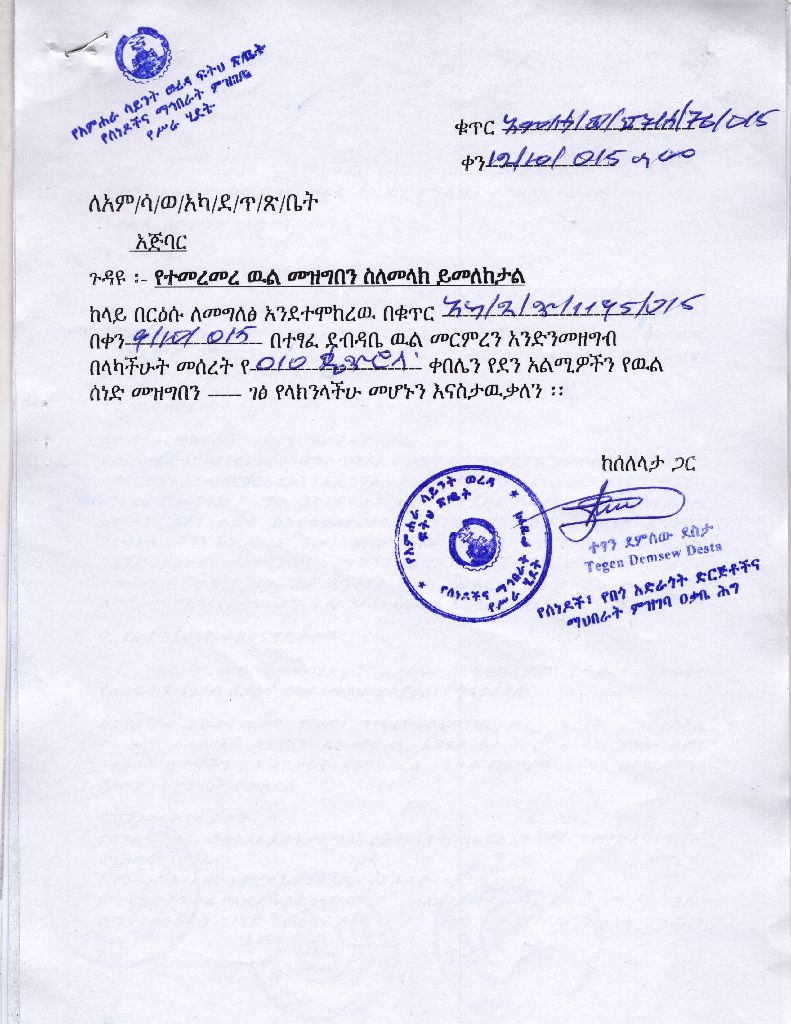 የአምሐራ ሳይንት ወረዳ ፍትህ ጽ/ቤት
የሰነዶችና ማኅበራት ምዝገባ
የሥራ ሂደት
ቁጥር
ቀን 12/10/015
ለአም/ሳ/ወ/አካ/ደ/ጥ/ጽ/ቤት
አጅባር
ጉዳዩ ፡- የተመረመረ ዉል መዝግበን ስለመላክ ይመለከታል
ከላይ በርዕሱ ለመግለፅ እንደተሞከረዉ በቁጥር
በቀን 9/10/015 በተፃፈ ደብዳቤ ዉል መርምረን እንድንመዘግብ
በላካችሁት መሰረት የ 010 ቀበሌን የደን አልሚዎችን የዉል
ሰነድ መዝግበን ---- ገፅ የላክንላችሁ መሆኑን እናስታዉቃለን ፡፡
ከሰለላታ ጋር
የአምሐራ ሳይንት ወረዳ
ፍትህ ጽ/ቤት
የሰነዶችና ማኅበራት
የሥራ ሂደት
ተገን ደምሰው ደስታ
Tegen Demsew Desta
የሰነዶች፣ የበጎ አድራጎት ድርጅቶችና
ማህበራት ምዝገባ ዐቃቤ ሕግ